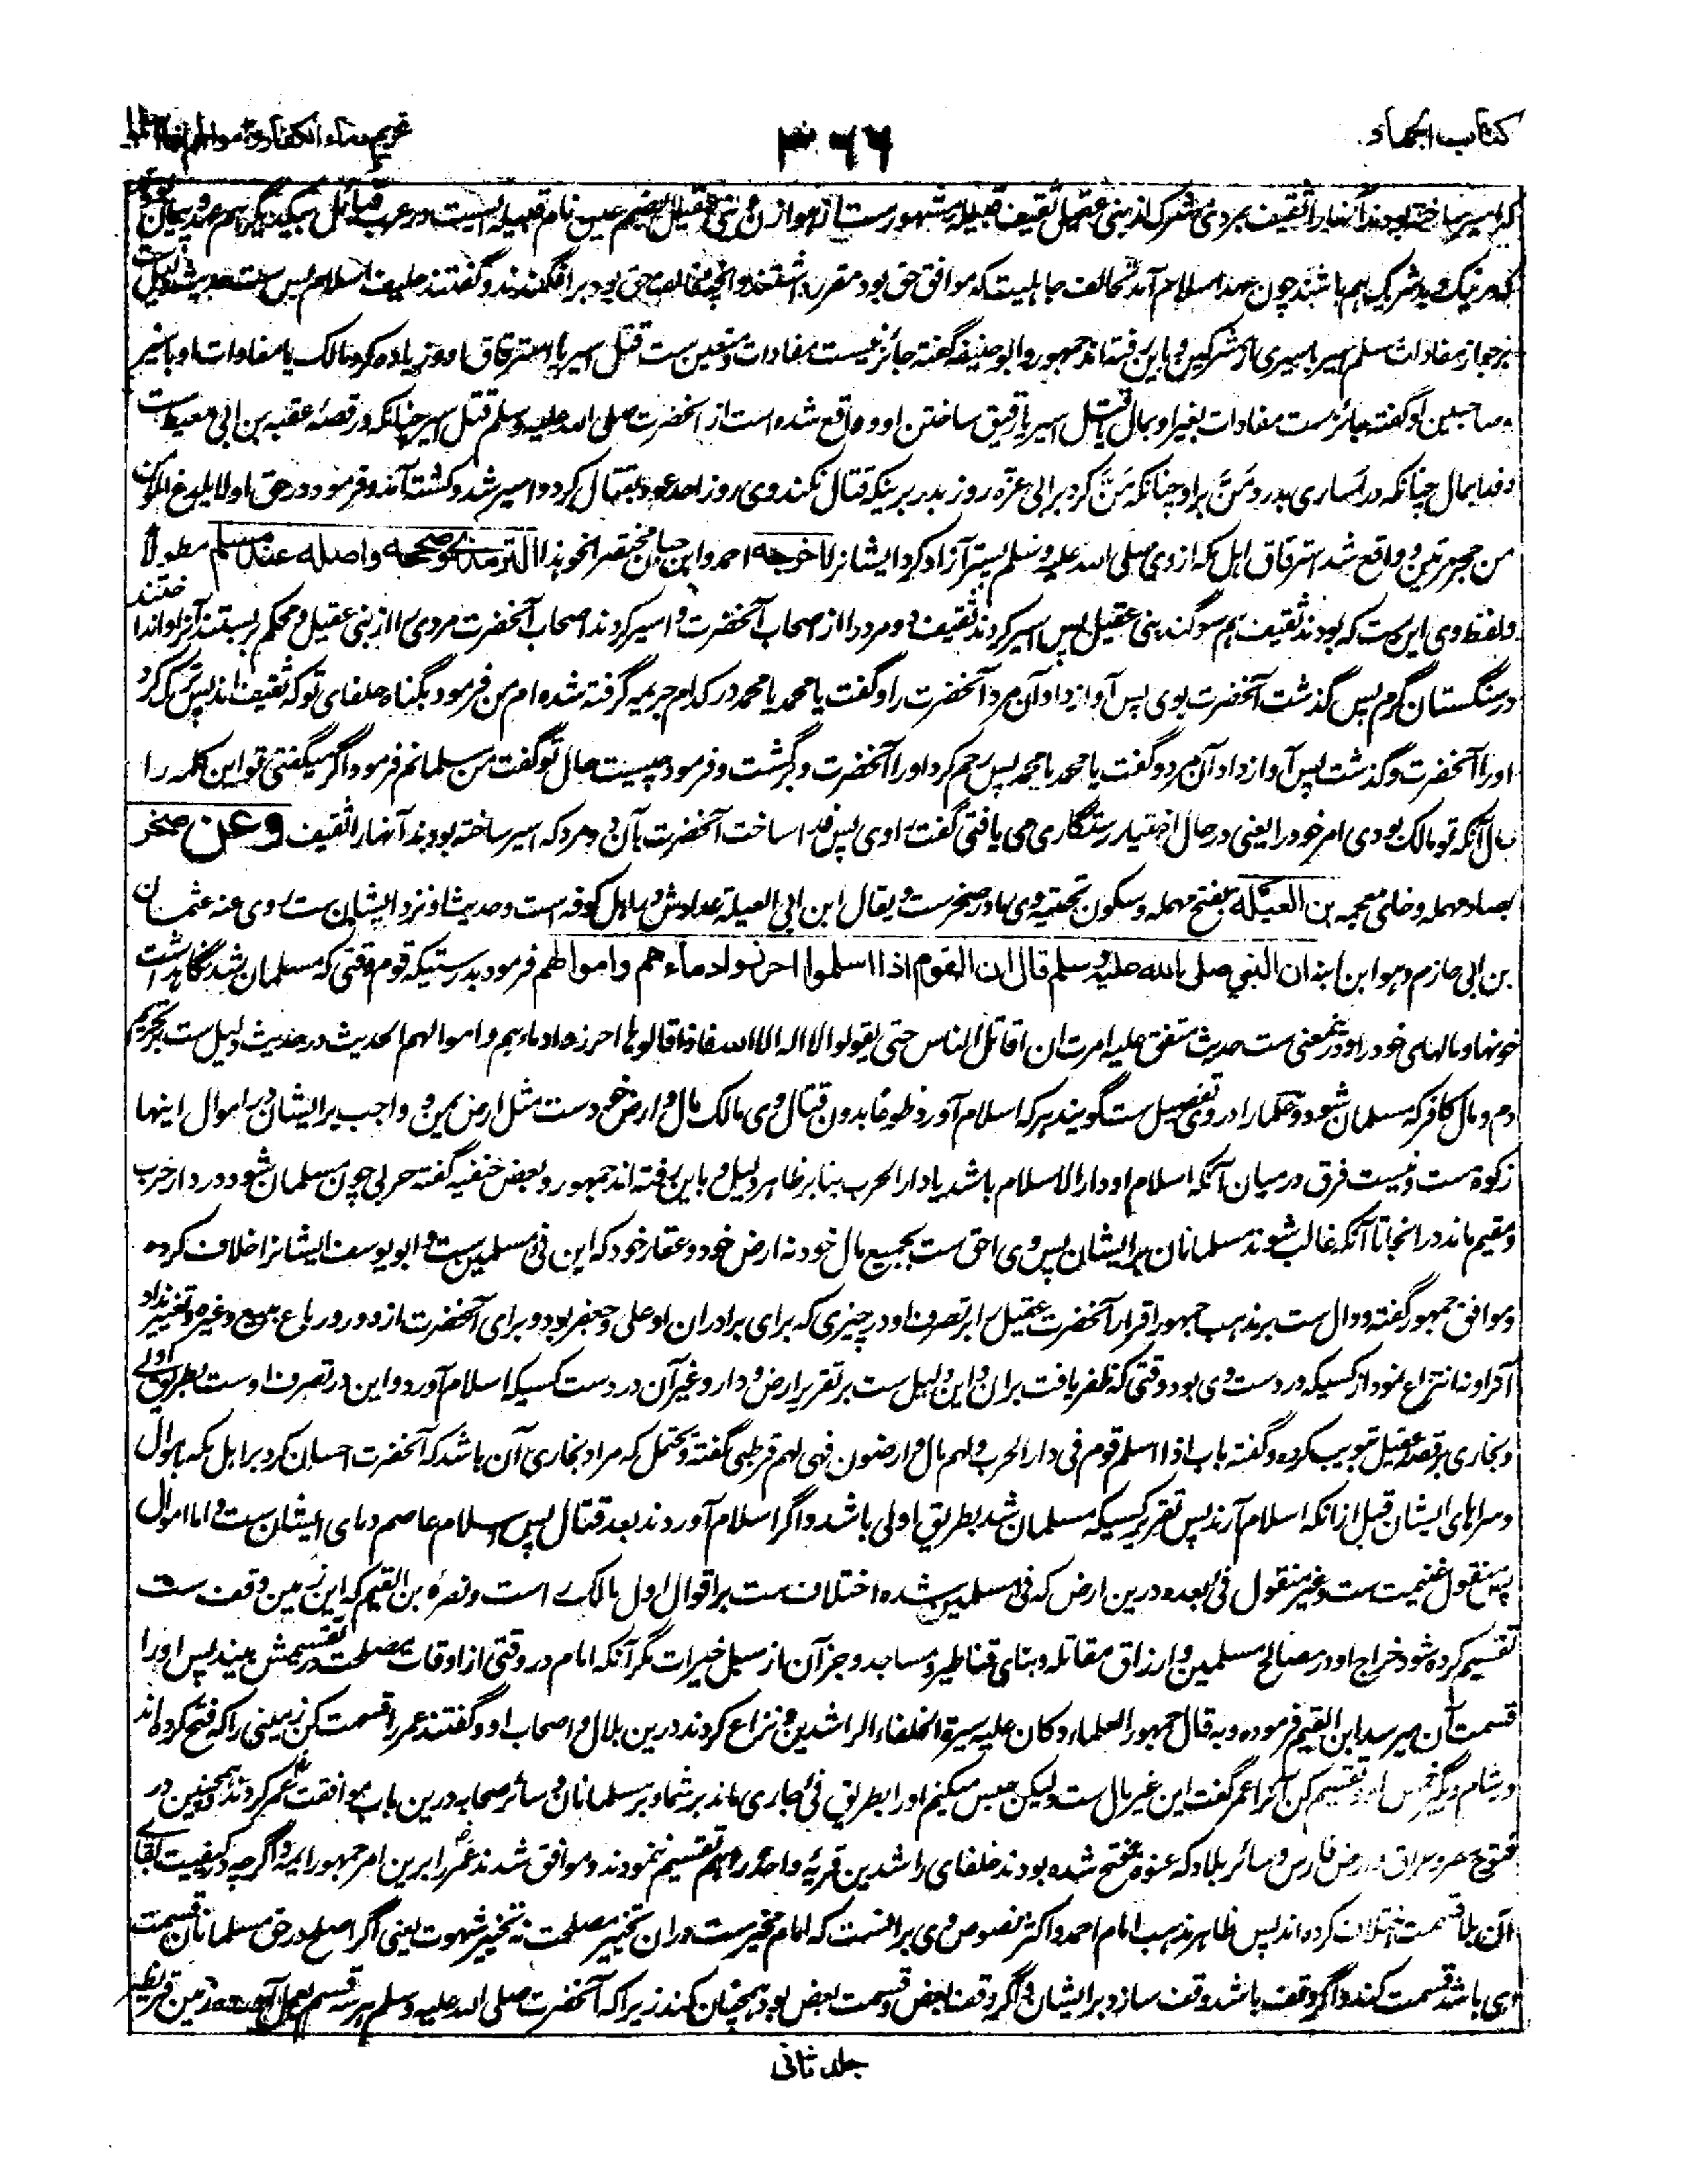 کتاب الجهاد
۳۶۶
که اسیر ساخته بودند آنها را ثقیف بمردی مشرک از بنی عقیل ثقیف قبیله مشهورست از هوازن و بنی عقیل بضم عین نام قبیله ایست و در عرب قبائل بیکدیگر هم عهد و پیمان
که در نیک و بد شریک هم باشند چون عهد اسلام آمد تحالف جاهلیت که موافق حق بود مقرر داشتند و آنچه مخالف حق بود برافگندند و گفتند حلیف اسلام پس
بر جواز مفادات مسلم اسیر باسیری از مشرکین و باین رفته اند جمهور و ابو حنیفه گفته جائز نیست مفادات و متعین ست قتل اسیر یا استرقاق او و زیاده کرد مالک یا مفادات او باسیر
و صاحبین او گفته جائزست مفادات بغیر او بمال یا قتل اسیر یا رقیق ساختن او و واقع شده است از آنحضرت صلی الله علیه وسلم قتل اسیر چنانکه در قصه عقبه بن ابی معیط ست
و فدا بمال چنانکه در اساری بدر و مَنّ براو چنانکه مَنّ کرد بر ابی عزه روز بدر برینکه قتال نکند و وی روز احد عود بقتال کرد و اسیر شد و کشته آمد و فرمود در حق او لا یلدغ المؤمن
من جحر مرتین و واقع شد استرقاق اهل مکه از وی صلی الله علیه وسلم پستر آزاد کرد ایشانرا اخرجه احمد و ابن حبان مختصر انحو هذا الترمذی وصححه واصله عند مسلم مطولا
و لفظ وی این ست که بودند ثقیف هم سوگند بنی عقیل پس اسیر کردند ثقیف دو مرد را از اصحاب آنحضرت و اسیر کردند اصحاب آنحضرت مردی را از بنی عقیل و محکم بربستند آنرا و انداختند
در سنگستان گرم پس گذشت آنحضرت بوی پس آواز داد آن مرد آنحضرت را و گفت یا محمد یا محمد در کدام جریمه گرفته شده ام من فرمود بگناه حلفای تو که ثقیف اند پس ترک کرد
او را آنحضرت و گذشت پس آواز داد آن مرد و گفت یا محمد یا محمد پس رحم کرد او را آنحضرت و برگشت و فرمود چیست حال تو گفت من مسلمانم فرمود اگر میگفتی تو این کلمه را
حال آنکه تو مالک بودی امر خود را یعنی در حال اختیار رستگاری می یافتی گفت راوی پس فدا ساخت آنحضرت بآن دو مرد که اسیر ساخته بودند آنها را ثقیف وعن صخر
بصاد مهمله و خای معجمه بن العیله بفتح مهمله و سکون تحتیه وی مادر صخرست و یقال ابن ابی العیلة عدادش در اهل کوفه است و حدیث او نزد ایشان ست روی عنه عثمان
بن ابی حازم و هو ابن ابنه ان النبي صلى الله عليه وسلم قال ان القوم اذا اسلموا احرزوا دماءهم واموالهم فرمود بدرستیکه قوم وقتی که مسلمان شدند نگاه داشت
خونها و مالهای خود را و درین معنی ست حدیث متفق علیه امرت ان اقاتل الناس حتی یقولوا لا اله الا الله فاذا قالوها احرزوا دماءهم و اموالهم الحدیث و درحدیث دلیل ست بر تحریم
دم و مال کافر که مسلمان شود و علما را در وی تفصیل ست گویند هر که اسلام آورد طوعا بدون قتال وی مالک مال و ارض خودست مثل ارض یمن و واجب بر ایشان در اموال اینها
زکوة ست و نیست فرق در میان آنکه اسلام او در دار الاسلام باشد یا دار الحرب بنا بر ظاهر دلیل و باین رفته اند جمهور و بعض حنفیه گفته حربی چون مسلمان شود در دار حرب
و مقیم ماند در انجا تا آنکه غالب شوند مسلمانان بر ایشان پس وی احق ست بجمیع مال خود نه ارض خود و عقار خود که این فیٔ مسلمین ست و ابو یوسف ایشانرا خلاف کرده
و موافق جمهور گفته و دال ست بر مذهب جمهور اقرار آنحضرت عقیل را بر تصرف او در چیزی که برای برادران او علی و جعفر بود و برای آنحضرت از دور و رباع ببیع و غیره و تغییر نداد
آنرا و نه انتزاع نمود از کسیکه در دست وی بود وقتی که ظفر یافت بران و این دلیل ست بر تقریر ارض و دار و غیر آن در دست کسیکه اسلام آورد و این در تصرف اوست بطریق اولی
و بخاری بر قصه عقیل تبویب کرده و گفته باب اذا اسلم قوم فی دار الحرب و لهم مال و ارضون فهی لهم قرطبی گفته و محتمل که مراد بخاری آن باشد که آنحضرت احسان کرد بر اهل مکه باموال
و سراهای ایشان قبل از انکه اسلام آرند پس تقریر کسیکه مسلمان شد بطریق اولی باشد و اگر اسلام آوردند بعد قتال پس اسلام عاصم دمای ایشان ست و اما اموال
پس منقول غنیمت ست و غیر منقول فیٔ بعده درین ارض که فیٔ مسلمین شده اختلاف ست بر اقوال اول مالک راست و نصره ابن القیم که این زمین وقف ست
تقسیم کرده شود خراج او در مصالح مسلمین و ارزاق مقاتله و بنای قناطیر و مساجد و جز آن از سبل خیرات مگر آنکه امام در وقتی از اوقات مصلحت در تقسیمش بیند پس او را
قسمت آن میرسد ابن القیم فرموده و به قال جمهور العلماء و کان علیه سیرة الخلفاء الراشدین و نزاع کردند درین بلال و اصحاب او و گفتند عمر را قسمت کن زمینی را که فتح کرده اند
در شام و بگیر خمس او و تقسیم کن آنرا عمر گفت این غیر مال ست ولیکن حبس میکنم او را بطریق فیٔ جاری ماند بر شما و بر مسلمانان و سائر صحابه درین باب موافقت عمر کردند و همچنین در
فتوح مصر و عراق و ارض فارس و سائر بلاد که عنوة فتح شده بودند خلفای راشدین قریهٔ واحده را هم تقسیم ننمودند و موافق شدند عمر را برین امر جمهور ایمه و اگر چه در کیفیت ابقای
آن بلا قسمت اختلاف کرده اند پس ظاهر مذهب امام احمد و اکثر نصوص وی بر انست که امام مخیرست در ان تخییر مصلحت نه تخییر شهوت یعنی اگر اصلح در حق مسلمانان قسمت
وی باشد قسمت کند و اگر وقف باشد وقف سازد بر ایشان و اگر وقف بعض و قسمت بعض بود همچنان کند زیرا که آنحضرت صلی الله علیه وسلم هر سه قسم بعمل آورده زمین قریظه
جلد ثانی